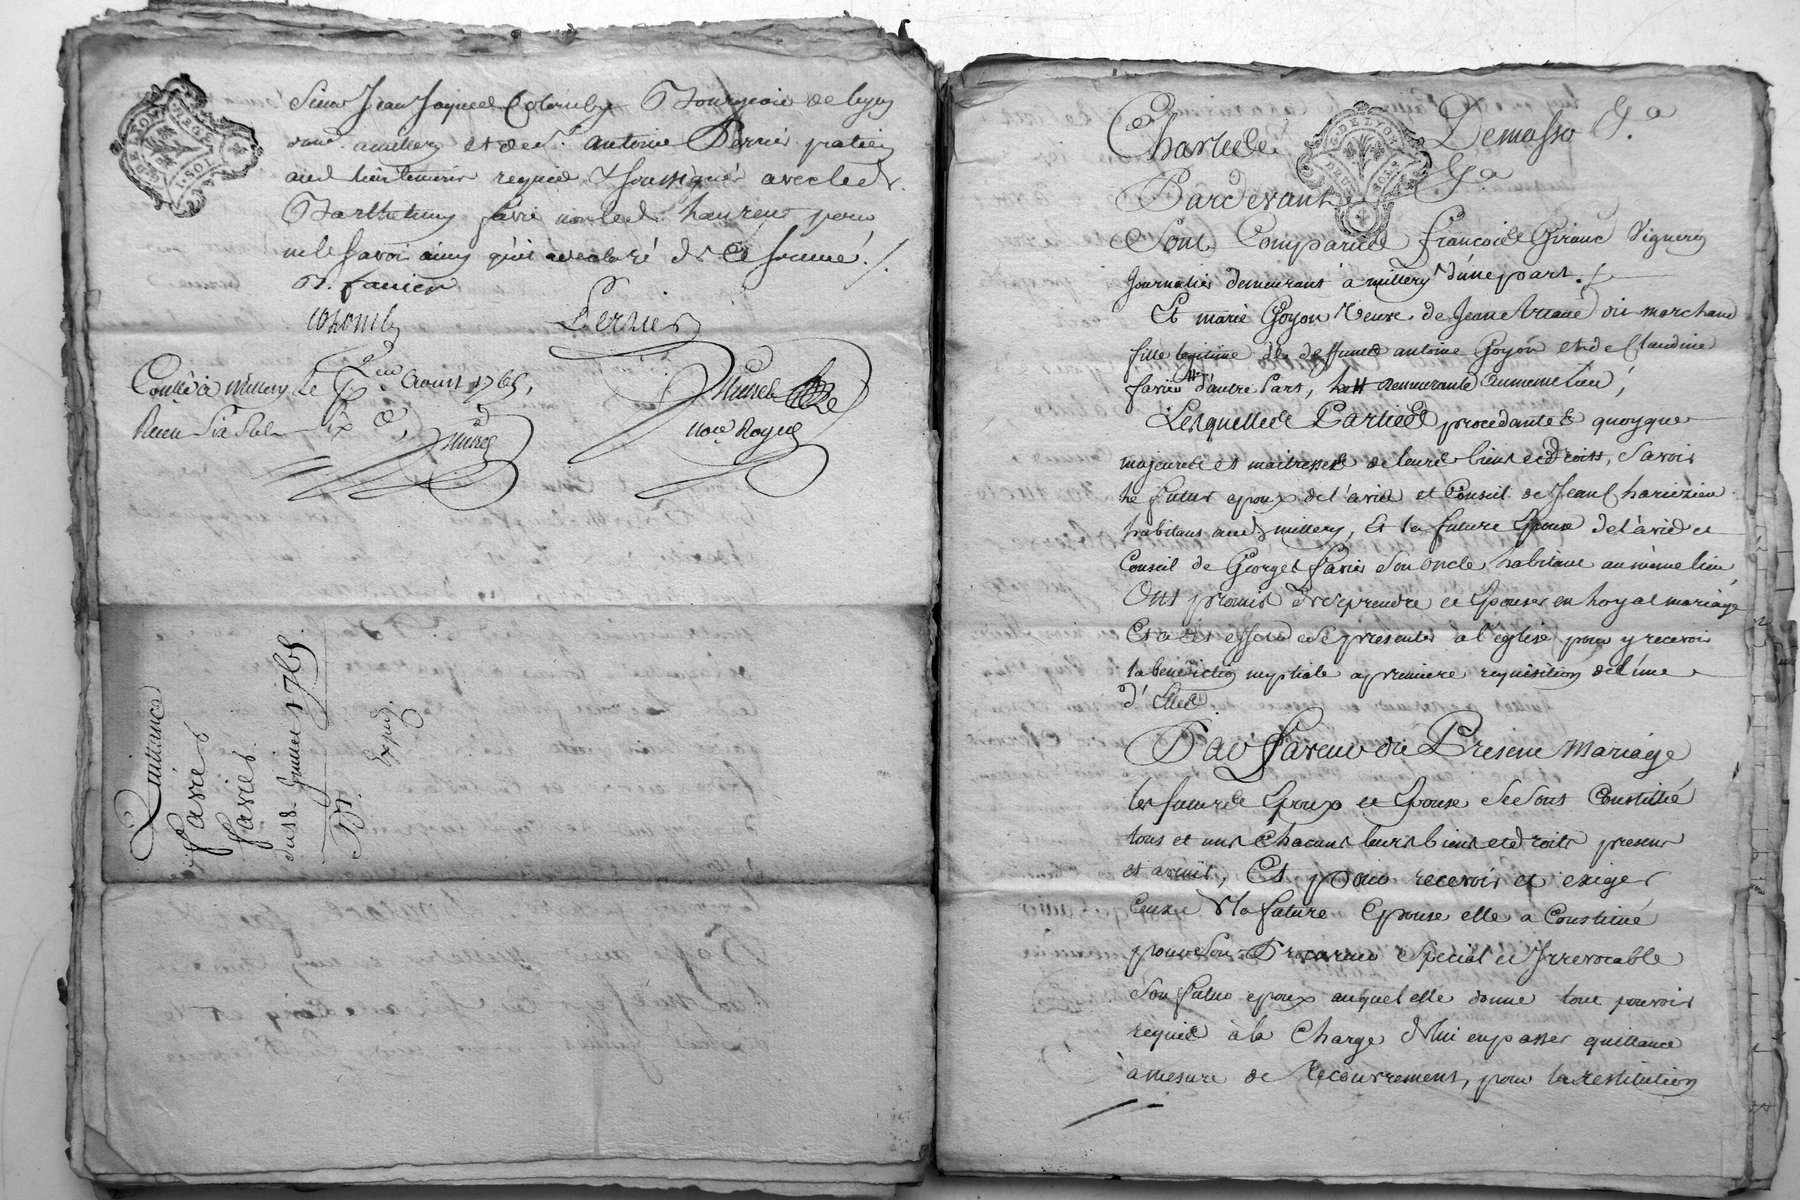 Sieur Jean Jaques Colomby Bourgeois de Lyon
aud. millery et de s.r antoine Perrier praticien
aud. lieu temoins requis & soussignés avec led.
Barthelemy favier non led. Laurent pour
ne le savoir ainsy qu'il a declaré de ce sommé ./.
B. favier
colomby
Perrier
Collé à Millery Le aoust 1765,
Reçeu
Not.e Royal
Quittance
favier
favier
du 18 Juillet 1765
Expié.
DE LYON
Charles Demasso
Pardevant
Sont Comparus françois Giraud Vigneron
Journalier demeurant à millery d'une part ./.
Et marie Goyon veuve de Jean vivant marchand
fille legitime de deffunts antoine Goyon et de Claudine
favier d'autre part, demeurante au meme lieu,
Lesquelles Parties procedantes quoyque
majeures et maitresses de leurs biens et droits, Savoir
Le futur epoux de l'avis et Conseil de Jean
habitant aud. millery, Et la future Epouse de l'avis et
Conseil de George favier son oncle habitant au même lieu
Ont promis de se prendre et Epouser en Loyal mariage
Et a cet effet de se presenter à l'église pour y recevoir
la benediction nuptiale a premiere requisition de l'une
d'Elles
En faveur du Present Mariage
les futurs Epoux et Epouse se sont Constitué
tous et uns Chacuns leurs biens et droits presens
et avenir, Et pour recevoir et exiger
Ceux de la future Epouse elle a Constitué
pour son Procureur Special et Irrevocable
son futur epoux auquel elle donne tout pouvoir
requis à la Charge de lui en passer quittance
à mesure de Recouvrement, pour la restitution